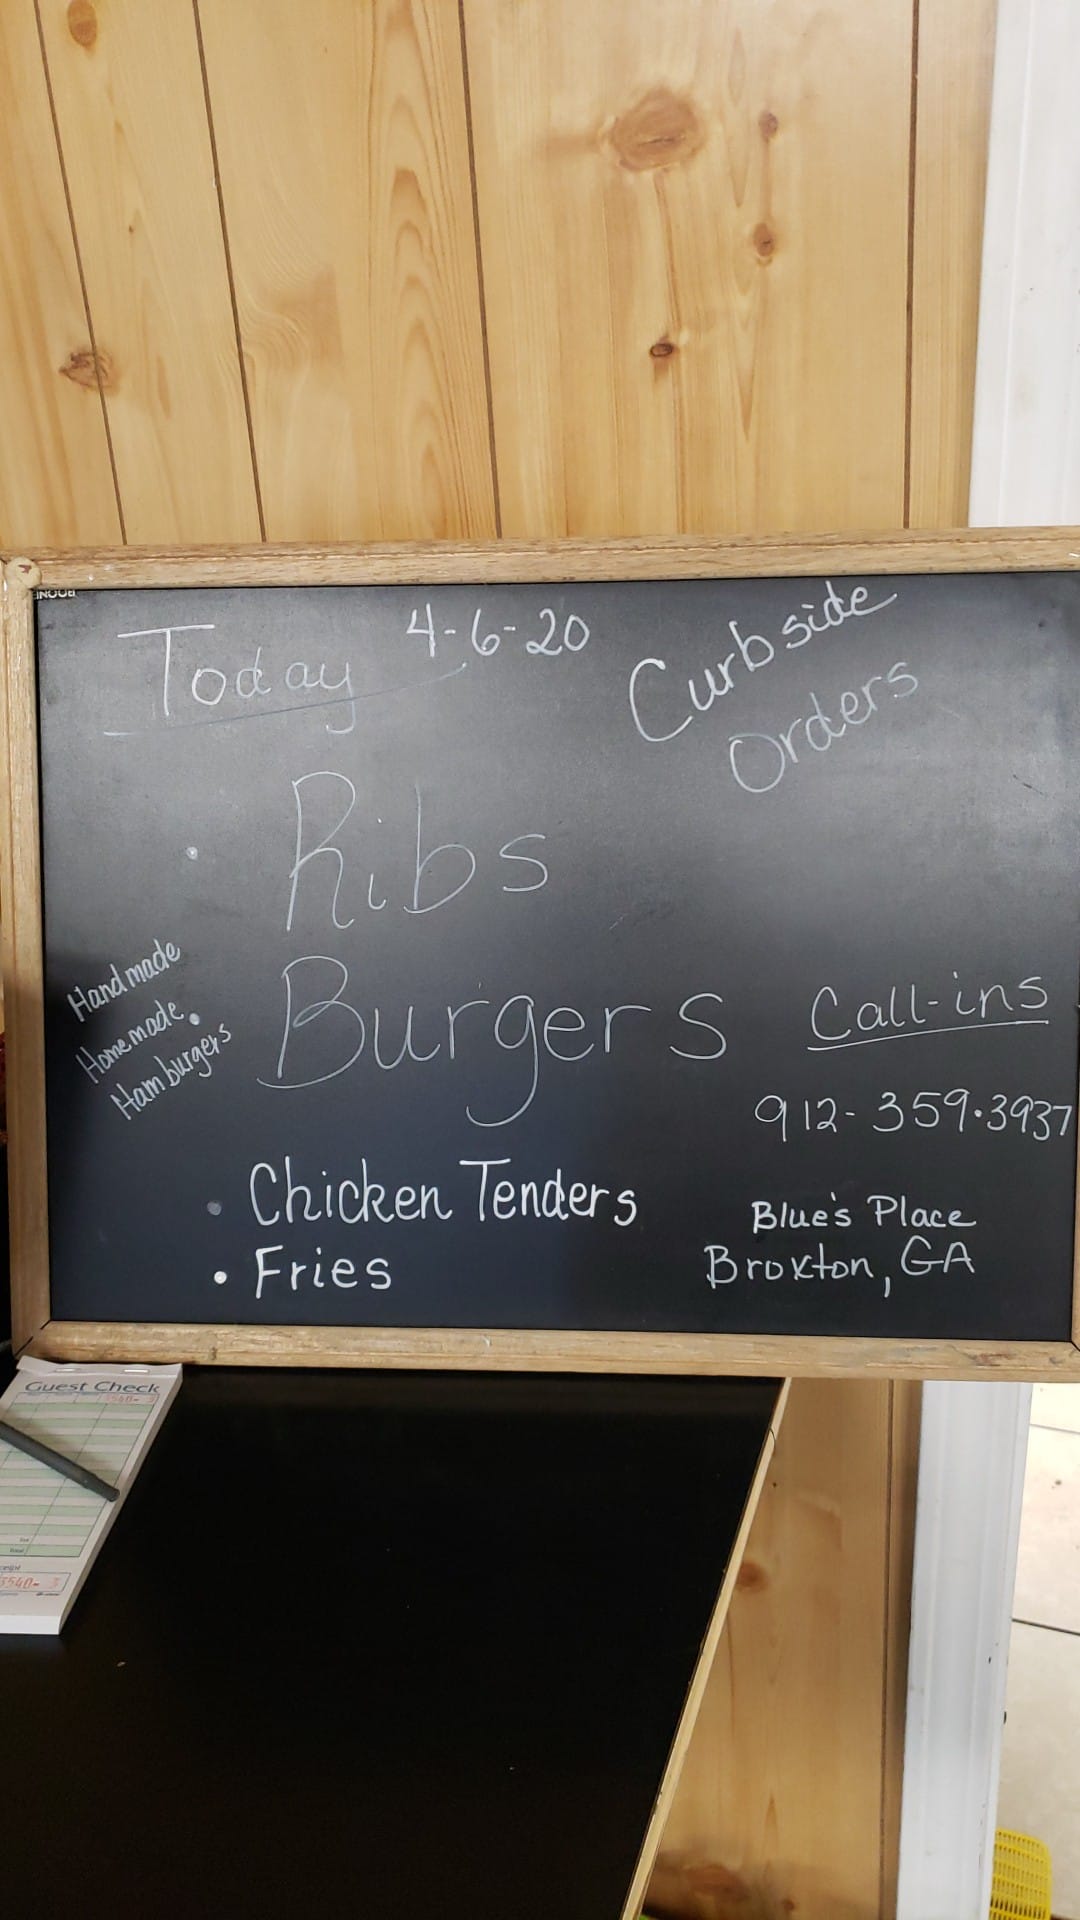 Today 4-6-20
Curbside
Orders
• Ribs
Handmade
Homemade
Hamburgers
• Burgers
Call-ins
912-359•3937
• Chicken Tenders
• Fries
Blue's Place
Broxton, GA
Guest Check
Tax
Total